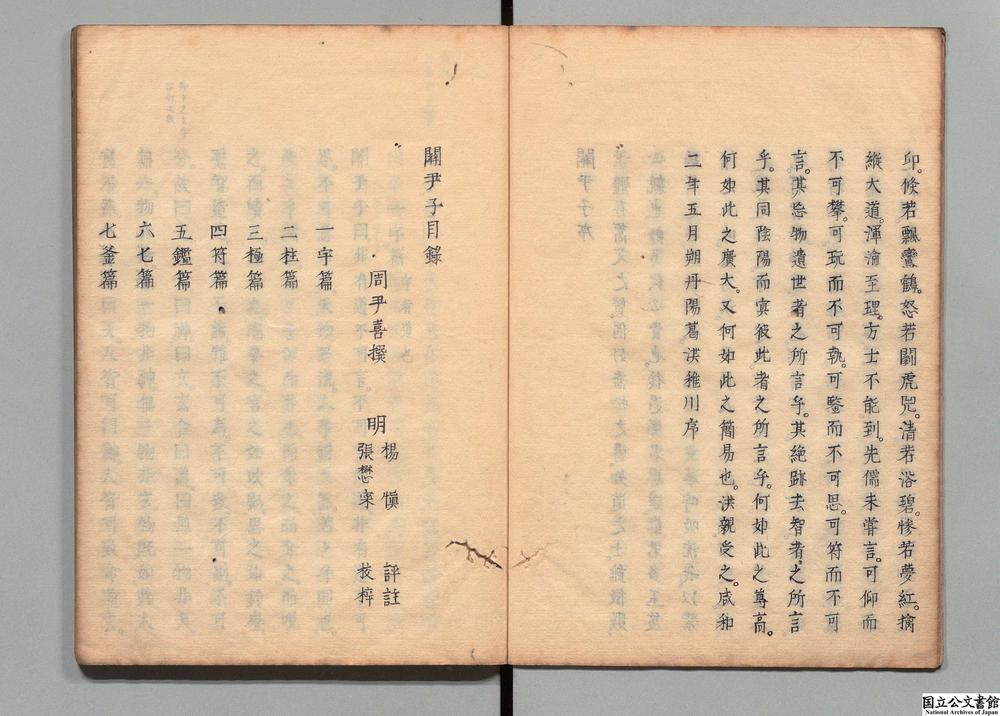 卬。倏若飄鸞鶴。怒若鬪虎兕。清若浴碧。慘若夢紅。擒
縱大道。渾淪至理。方士不能到。先儒未嘗言。可仰而
不可攀。可玩而不可執。可鑒而不可思。可符而不可
言。其忘物遺世者之所言乎。其絶跡去智者之所言
乎。其同陰陽而冥彼此者之所言乎。何如此之尊高。
何如此之廣大。又何如此之簡易也。洪親受之。咸和
二年五月朔丹陽葛洪稚川序
關尹子目錄
周尹喜撰
明 楊慎 評註
張懋寀 挍梓
一宇篇
二柱篇
三極篇
四符篇
五鑑篇
六七篇
七釜篇
国立公文書館
National Archives of Japan